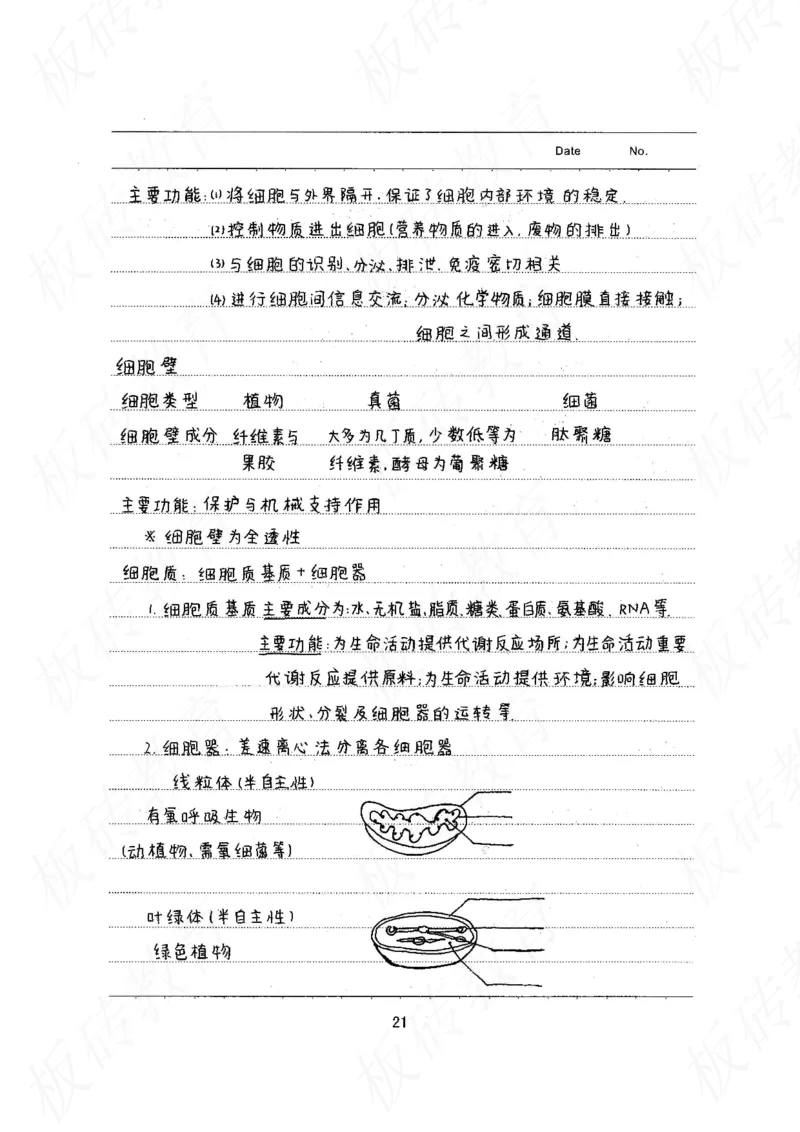 Date No.
主要功能:(1)将细胞与外界隔开.保证了细胞内部环境的稳定.
(2)控制物质进出细胞(营养物质的进入,废物的排出)
(3)与细胞的识别、分泌、排泄.免疫密切相关
(4)进行细胞间信息交流;分泌化学物质;细胞膜直接接触;
细胞之间形成通道.
细胞壁
细胞类型 植物 真菌 细菌
细胞壁成分 纤维素与 大多为几丁质,少数低等为 肽聚糖
果胶 纤维素.酵母为葡聚糖
主要功能:保护与机械支持作用
※ 细胞壁为全透性
细胞质: 细胞质基质+细胞器
1.细胞质基质主要成分为:水、无机盐、脂质.糖类.蛋白质、氨基酸、RNA等.
主要功能:为生命活动提供代谢反应场所;为生命活动重要
代谢反应提供原料;为生命活动提供环境;影响细胞
形状、分裂及细胞器的运转等.
2.细胞器:差速离心法分离各细胞器
线粒体(半自主性)
有氧呼吸生物
(动植物、需氧细菌等)
叶绿体(半自主性)
绿色植物
21
板砖教育